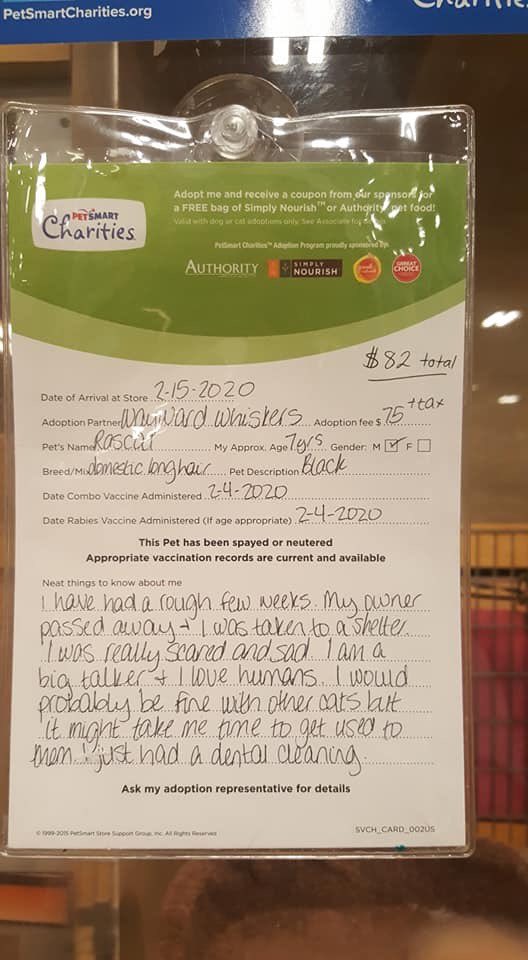 PetSmartCharities.org
Adopt me and receive a coupon from our sponsors for
a FREE bag of Simply Nourish™ or Authority pet food!
Valid with dog or cat adoptions only. See Associate for
PETSMART
Charities
PetSmart Charities™ Adoption Program proudly sponsored by:
AUTHORITY
SIMPLY
NOURISH
GREAT
CHOICE
$82 total
Date of Arrival at Store 2-15-2020
Adoption Partner Wayward Whiskers Adoption fee $ 75 +tax
Pet's Name Rascal My Approx. Age 7yrs Gender: M ☑ F ☐
Breed/Mix domestic longhair Pet Description Black
Date Combo Vaccine Administered 2-4-2020
Date Rabies Vaccine Administered (If age appropriate) 2-4-2020
This Pet has been spayed or neutered
Appropriate vaccination records are current and available
Neat things to know about me
I have had a rough few weeks. My owner
passed away + I was taken to a shelter.
I was really scared and sad. I am a
big talker + I love humans. I would
probably be fine with other cats but
it might take me time to get used to
them. I just had a dental cleaning.
Ask my adoption representative for details
© 1999-2015 PetSmart Store Support Group, Inc. All Rights Reserved
SVCH_CARD_002US